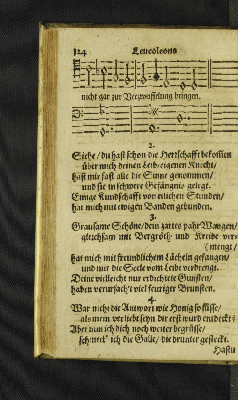 124 Leucoleons
nicht gar zur Verzweiffelung bringen.
2.
Siehe/du hast schon die Herrschafft bekommen
über mich deinen Leib-eigenen Knecht/
hast mir fast alle die Sinne genommen/
und sie in schwere Gefängnis gelegt.
Einige Kundschafft vor etlichen Stunden/
hat mich mit ewigen Banden gebunden.
3.
Grausame Schöne/dein zartes paar Wangen/
gleichsam mit Bergröth und Kreide ver-
(menget/
hat mich mit freundlichem Lächeln gefangen/
und mir die Seele vom Leibe verdrengt.
Deine vielleicht nur erdichtete Gunsten/
haben verursacht viel feuriger Brunsten.
4.
War nicht die Antwort wie Honig so süsse/
als mein verliebt seyn dir erst wurd entdeckt?
Aber nun ich dich noch weiter begrüsse/
schmeck' ich die Galle/die drunter gesteckt.
Hastu